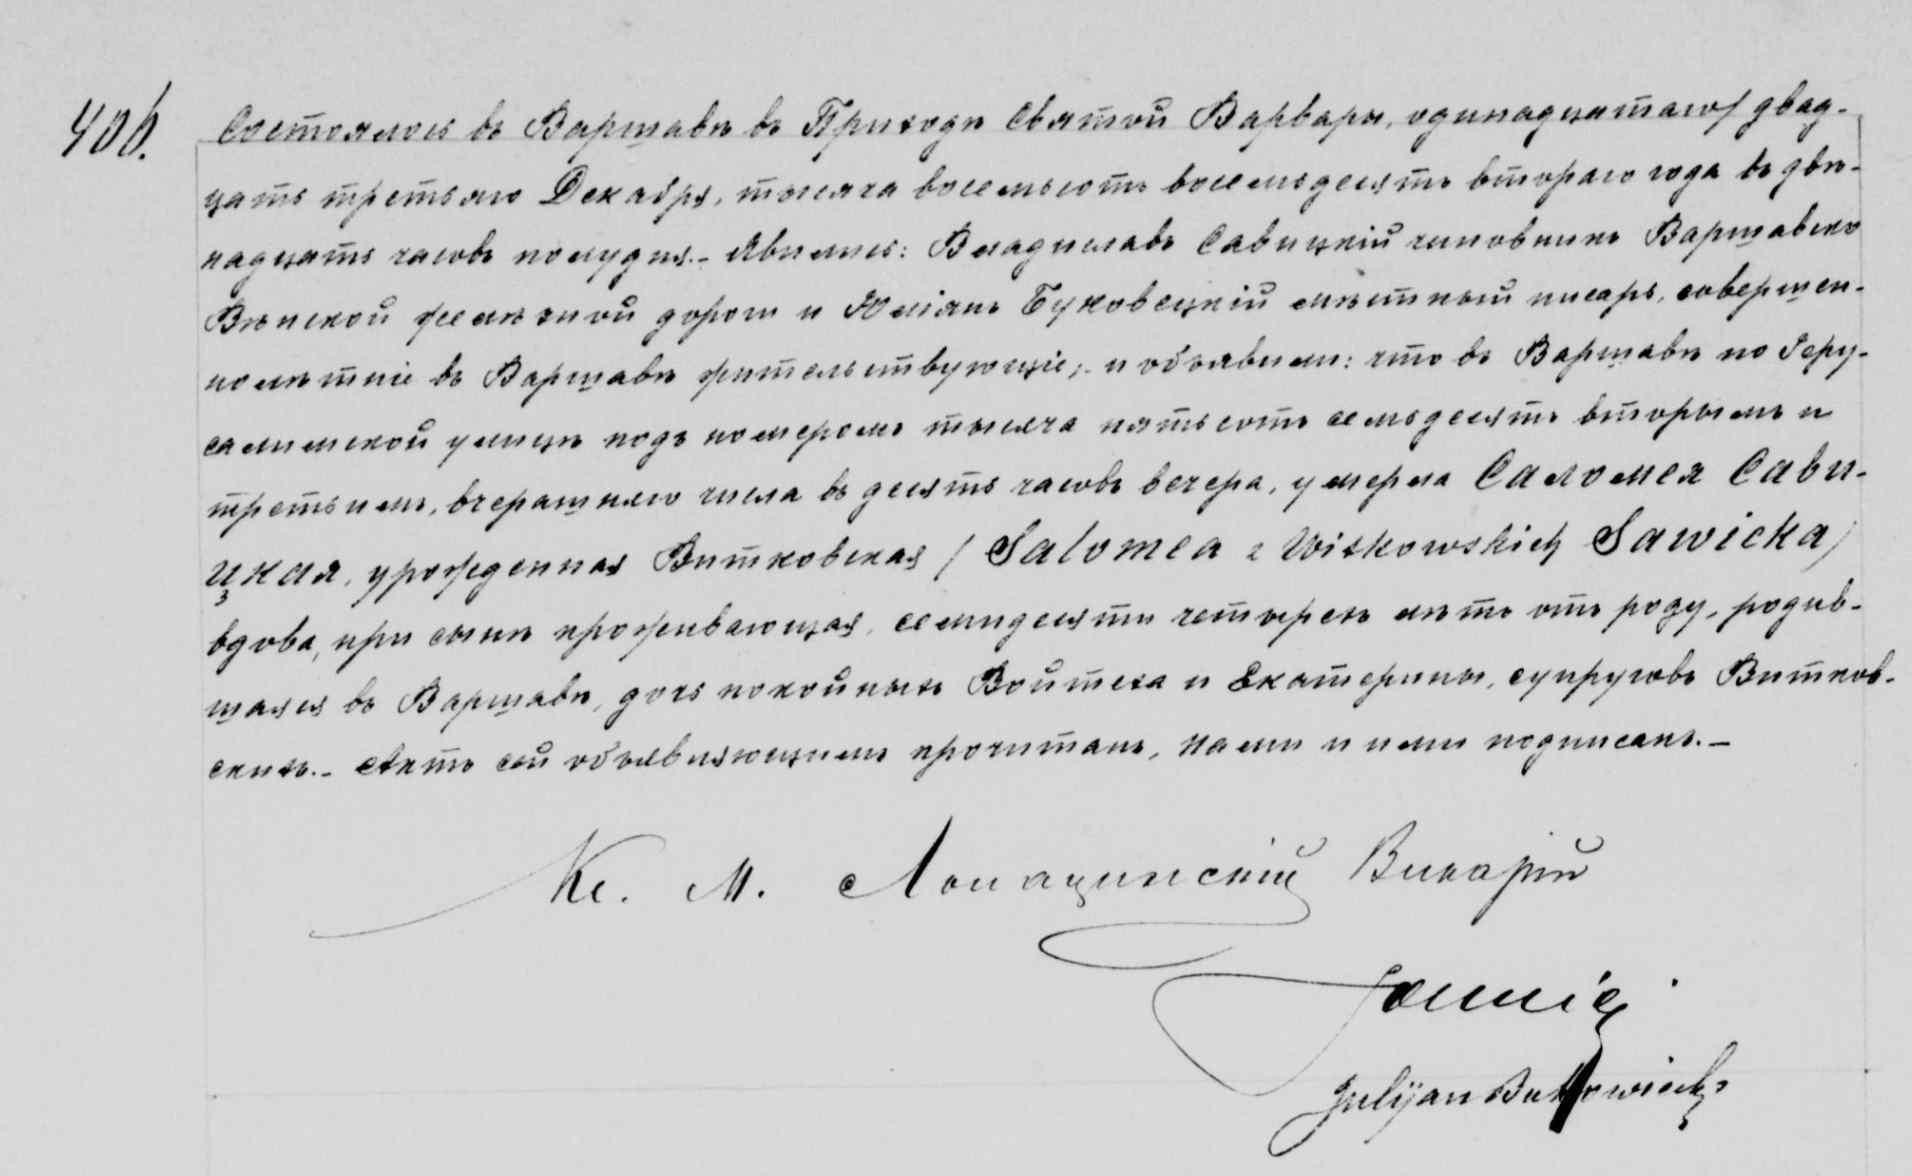 406.
Состоялось въ Варшавѣ въ Приходѣ Святой Варвары, одинадцатаго/двад-
цать третьяго Декабря, тысяча восемьсотъ восемьдесятъ втораго года въ двѣ-
надцать часовъ полудня.- Явились: Владиславъ Савицкій чиновникъ Варшавско
Вѣнской желѣзной дороги и Юліянъ Буковецкій мѣстный писарь, совершен-
нолѣтніе въ Варшавѣ жительствующіе,- и объявили: что въ Варшавѣ по Іеру-
салимской улицѣ подъ номеромъ тысяча пятьсотъ семьдесятъ вторымъ и
третьимъ, вчерашняго числа въ десять часовъ вечера, умерла Саломея Сави-
цкая, урожденная Витковская /Salomea z Witkowskich Sawicka/
вдова, при сынѣ проживающая, семидесяти четырехъ лѣтъ отъ роду, родив-
шаяся въ Варшавѣ, дочь покойныхъ Войтеха и Екатерины, супруговъ Витков-
скихъ.- Актъ сей объявляющимъ прочитанъ, нами и ними подписанъ.-
Кс. М. Викарій
Julijan Bukowiecki